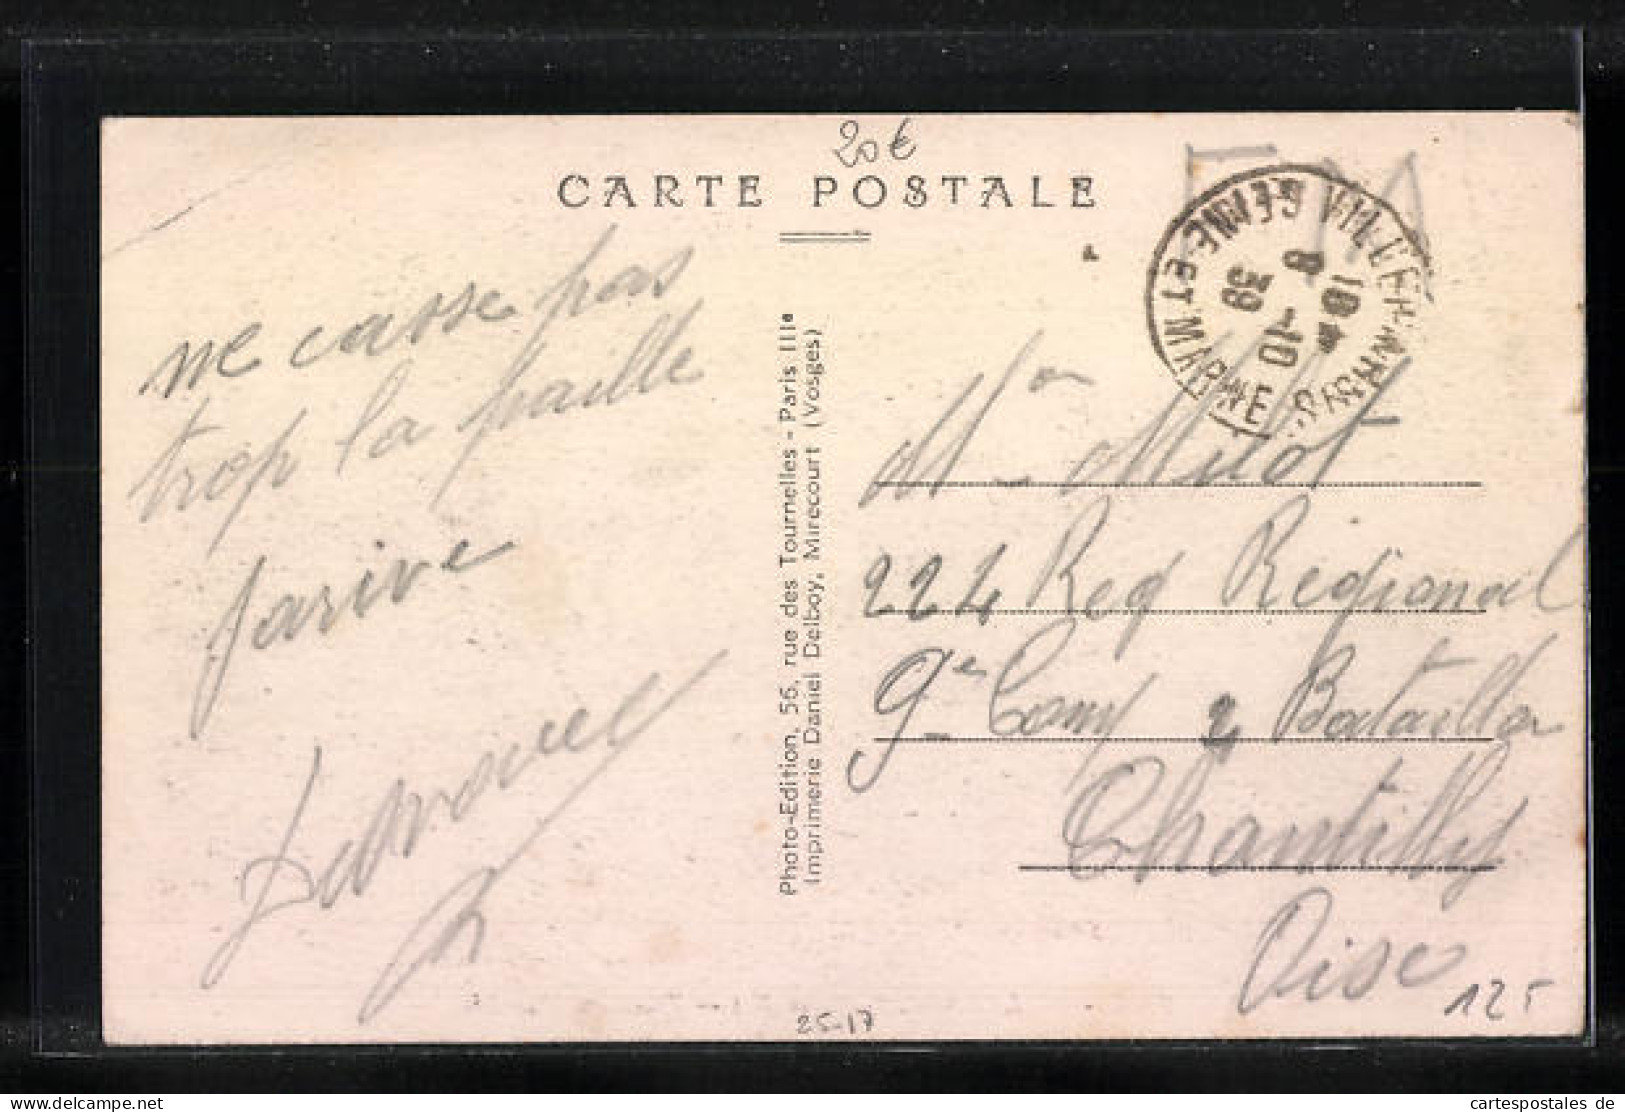 20€
CARTE POSTALE
F M
SEINE-ET-MARNE
18 H
8 -10
39
me casse pas
trop la paille
jarive
Photo-Edition, 56, rue des Tournelles - Paris IIIe
Imprimerie Daniel Delboy, Mirecourt (Vosges)
Mon
224 Reg Régional
9e Comp 2 Bataillon
Chantilly
Oise
125
25-17
www.cartespostales.de
cartespostales de